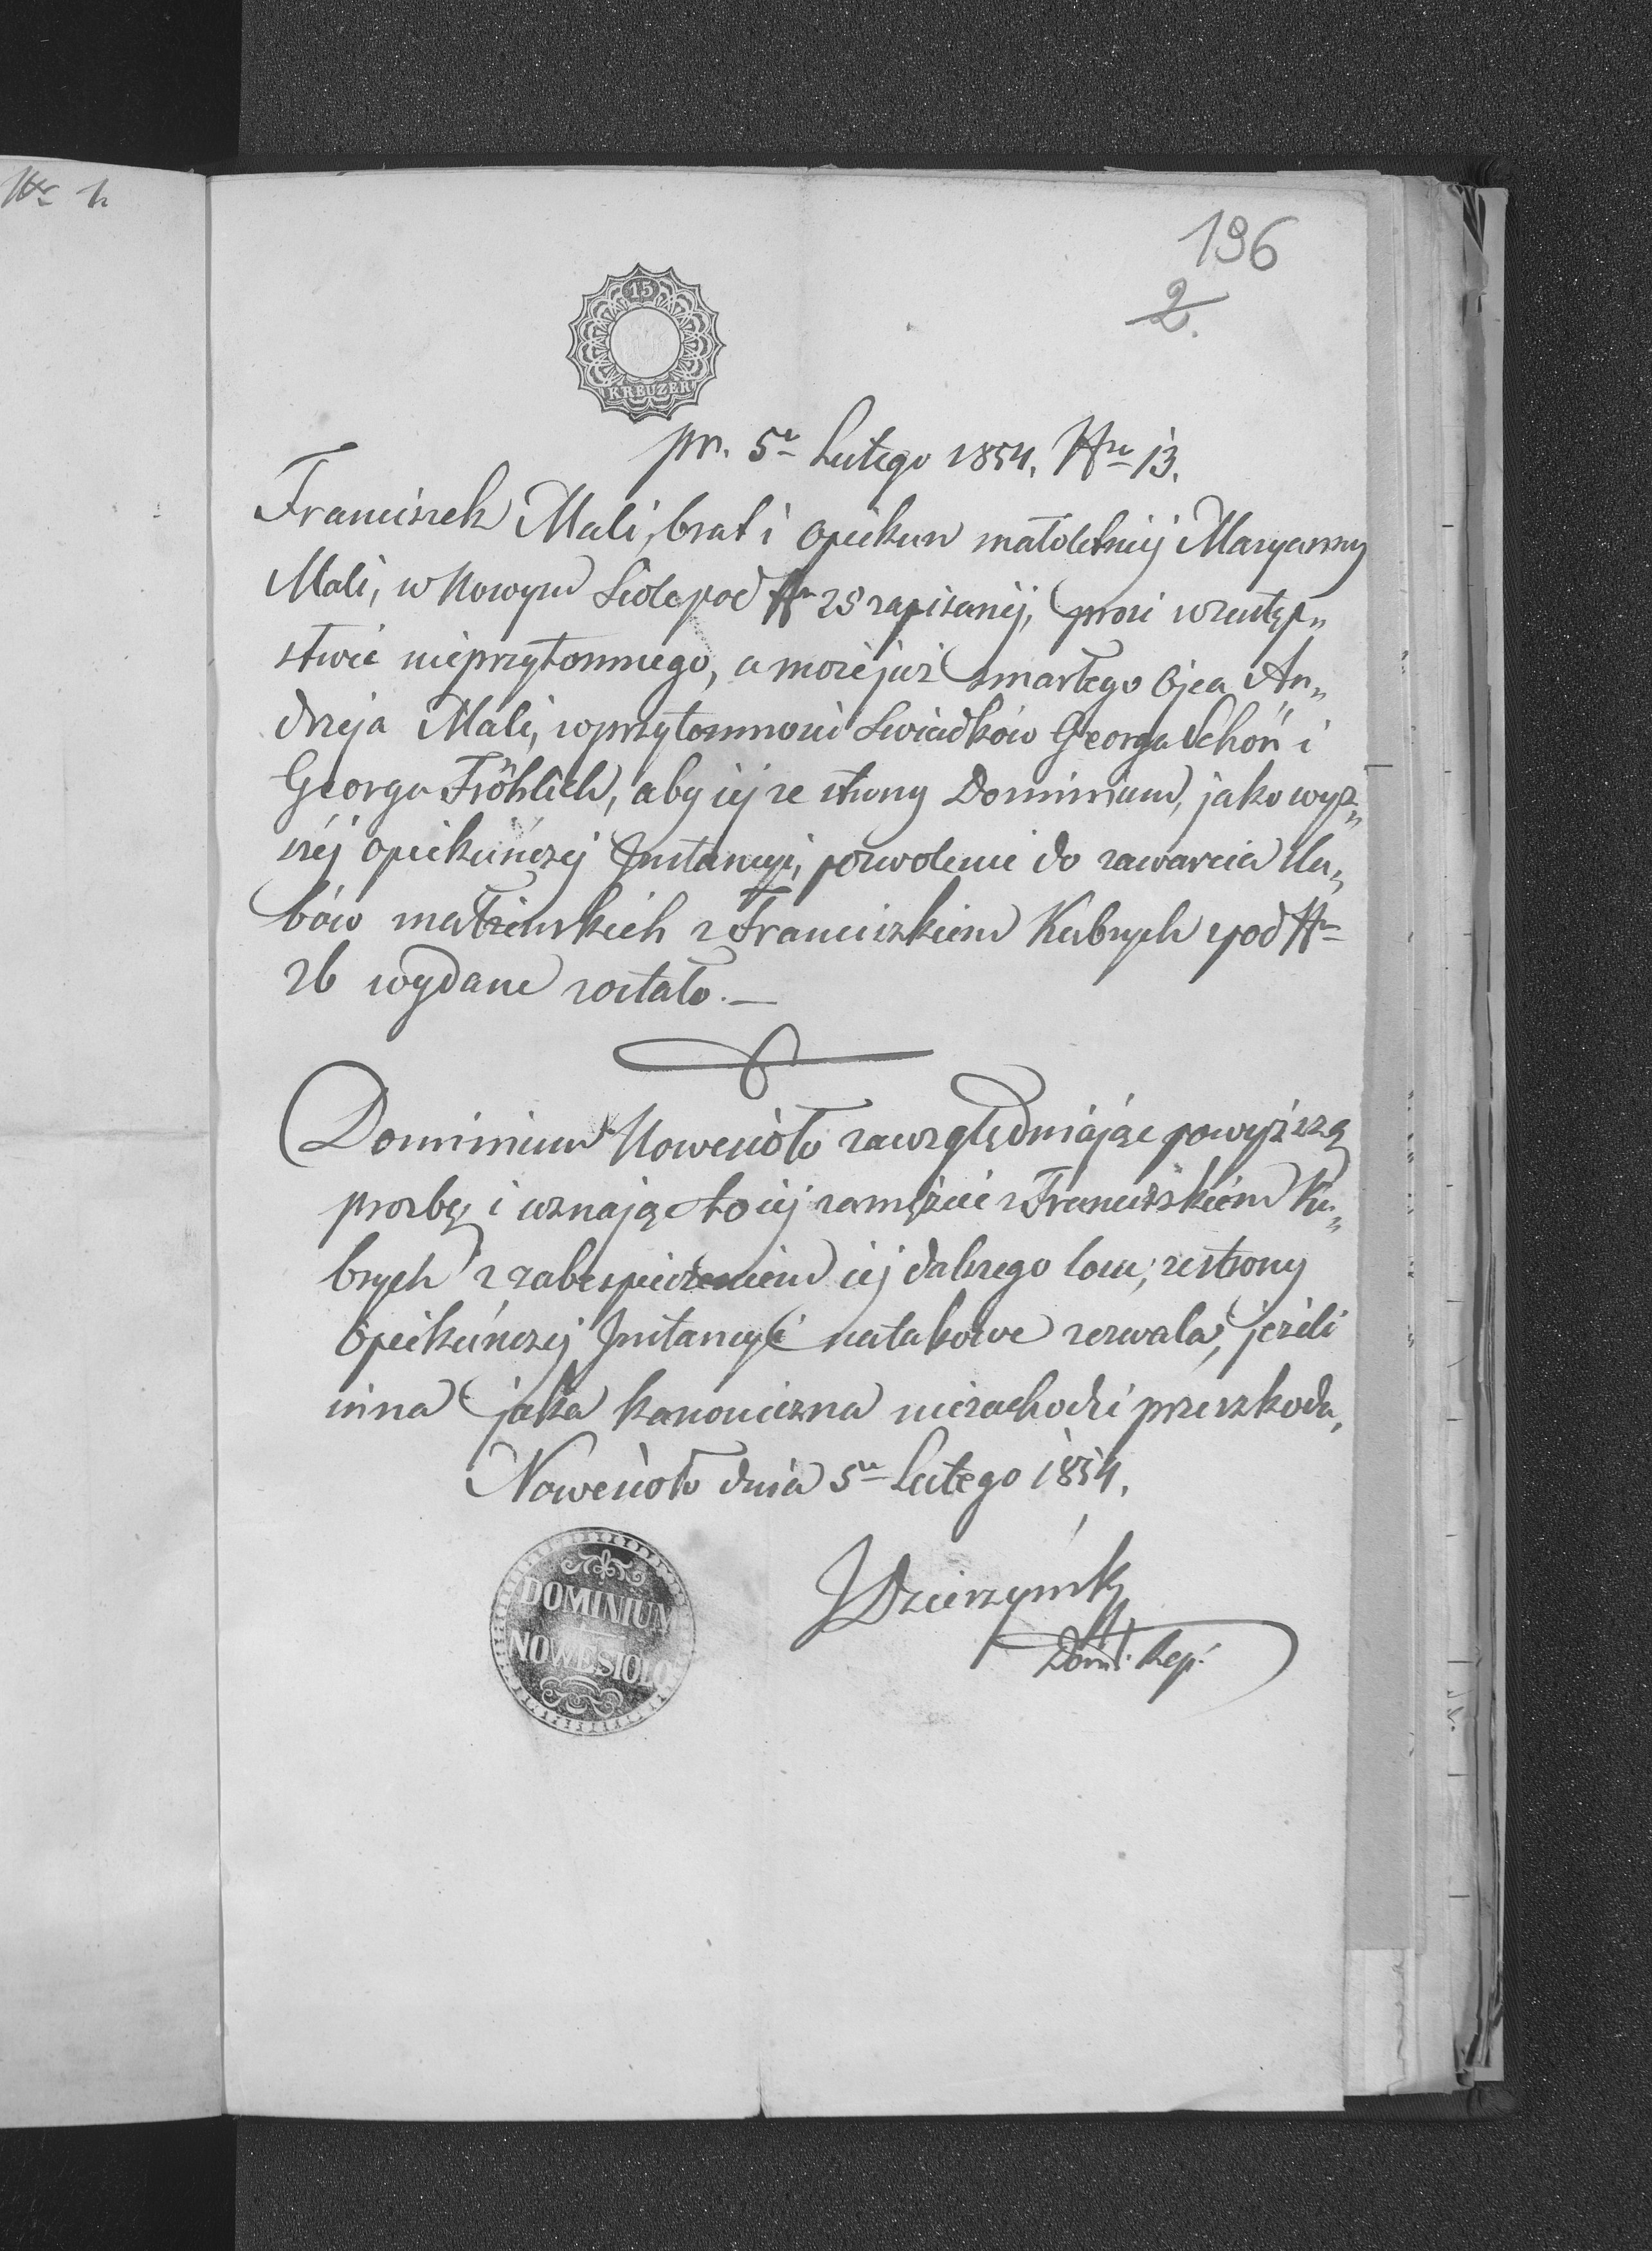 Nr 1.
196
2.
15
KREUZER
pr. 5n Lutego 1854. Nro 13.
Franciszek Mali, brat i opiekun małoletniej Maryanny
Mali, w Nowym Siole pod Nr 28 zapisanej, prosi w zastęp„
stwie nieprzytomnego, a może już zmarłego Ojca An„
drzeja Mali, w przytomności Swiadków Georga Schön i
Georga Fröhlich, aby jej ze strony Dominium, jako wyż„
széj opiekuńczej Instancyi, pozwolenie do zawarcia slu„
bów małżenskich z Franciszkiem Kubrych pod Nr
26 wydane zostało. —
Dominium Nowesioło zawzględniając powyższą
prozbę i uznając to jej zamęzcie z Franciszkiem Ku„
brych z zabespieczeniem jej dalszego losu, ze strony
Opiekuńczej Instancyi na takowe zezwala, jeżeli
inna jaka kanoniczna niezachodzi przeszkoda.
Nowesioło dnia 5n Lutego 1854.
DOMINIUM
NOWESIOLO
JDzierzyńsky
Domi. Rep.